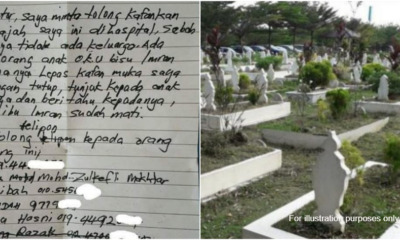 tu, saya minta tolong kafankan
ajah saya ini di hospital. Sebab
ya tidak ada keluarga. Ada
orang anak O.K.U bisu Imran
anya lepas kafan muka saya
ngan tutup, tunjuk kepada anak
a dan beritahu kepadanya,
ibu Imran sudah mati.
telipon
olong kepada orang
ng ini
Mohd Zulkefli Mokhtar
ibah 010-545
9775
a Hosni 019-4492
Razak
For illustration purposes only